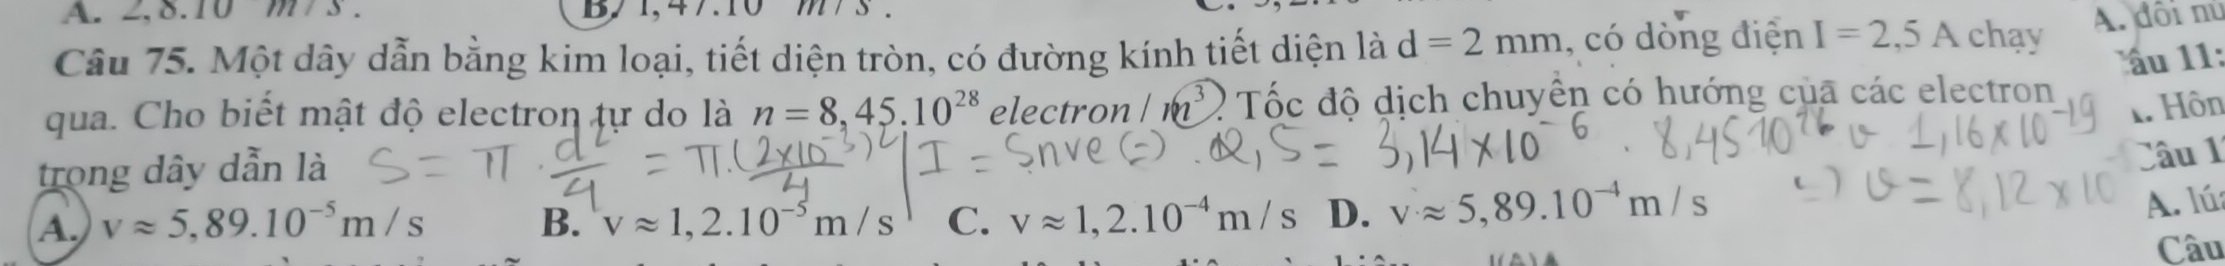 A. 2,8.10 m/s.
B. 1,47.10 m/s.
Câu 75. Một dây dẫn bằng kim loại, tiết diện tròn, có đường kính tiết diện là d = 2 mm, có dòng điện I = 2,5 A chạy
qua. Cho biết mật độ electron tự do là n = 8,45.10²⁸ electron / m³. Tốc độ dịch chuyển có hướng của các electron
trong dây dẫn là
S = π . d²/4 = π.(2x10⁻³)²/4 | I = Snve (=) 2,5 = 3,14x10⁻⁶ . 8,45 10²⁶ v 1,16x10⁻¹⁹
(=) v = 8,12 x 10
A. v ≈ 5,89.10⁻⁵ m / s B. v ≈ 1,2.10⁻⁵ m / s C. v ≈ 1,2.10⁻⁴ m / s D. v ≈ 5,89.10⁻⁴ m / s
A. đôi
Câu 11:
Hôn
Câu 1
A.
Câu